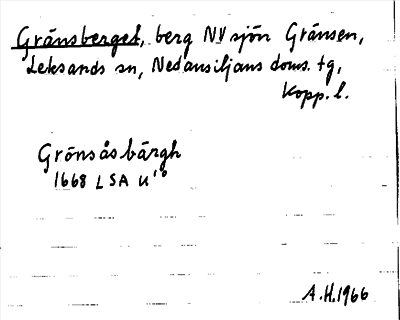 Gränsberget, berg NV sjön Gränsen,
Leksands sn, Nedansiljans doms. tg,
Kopp. l.
Grönsåsbärgh
1668 LSA U
A.H. 1966